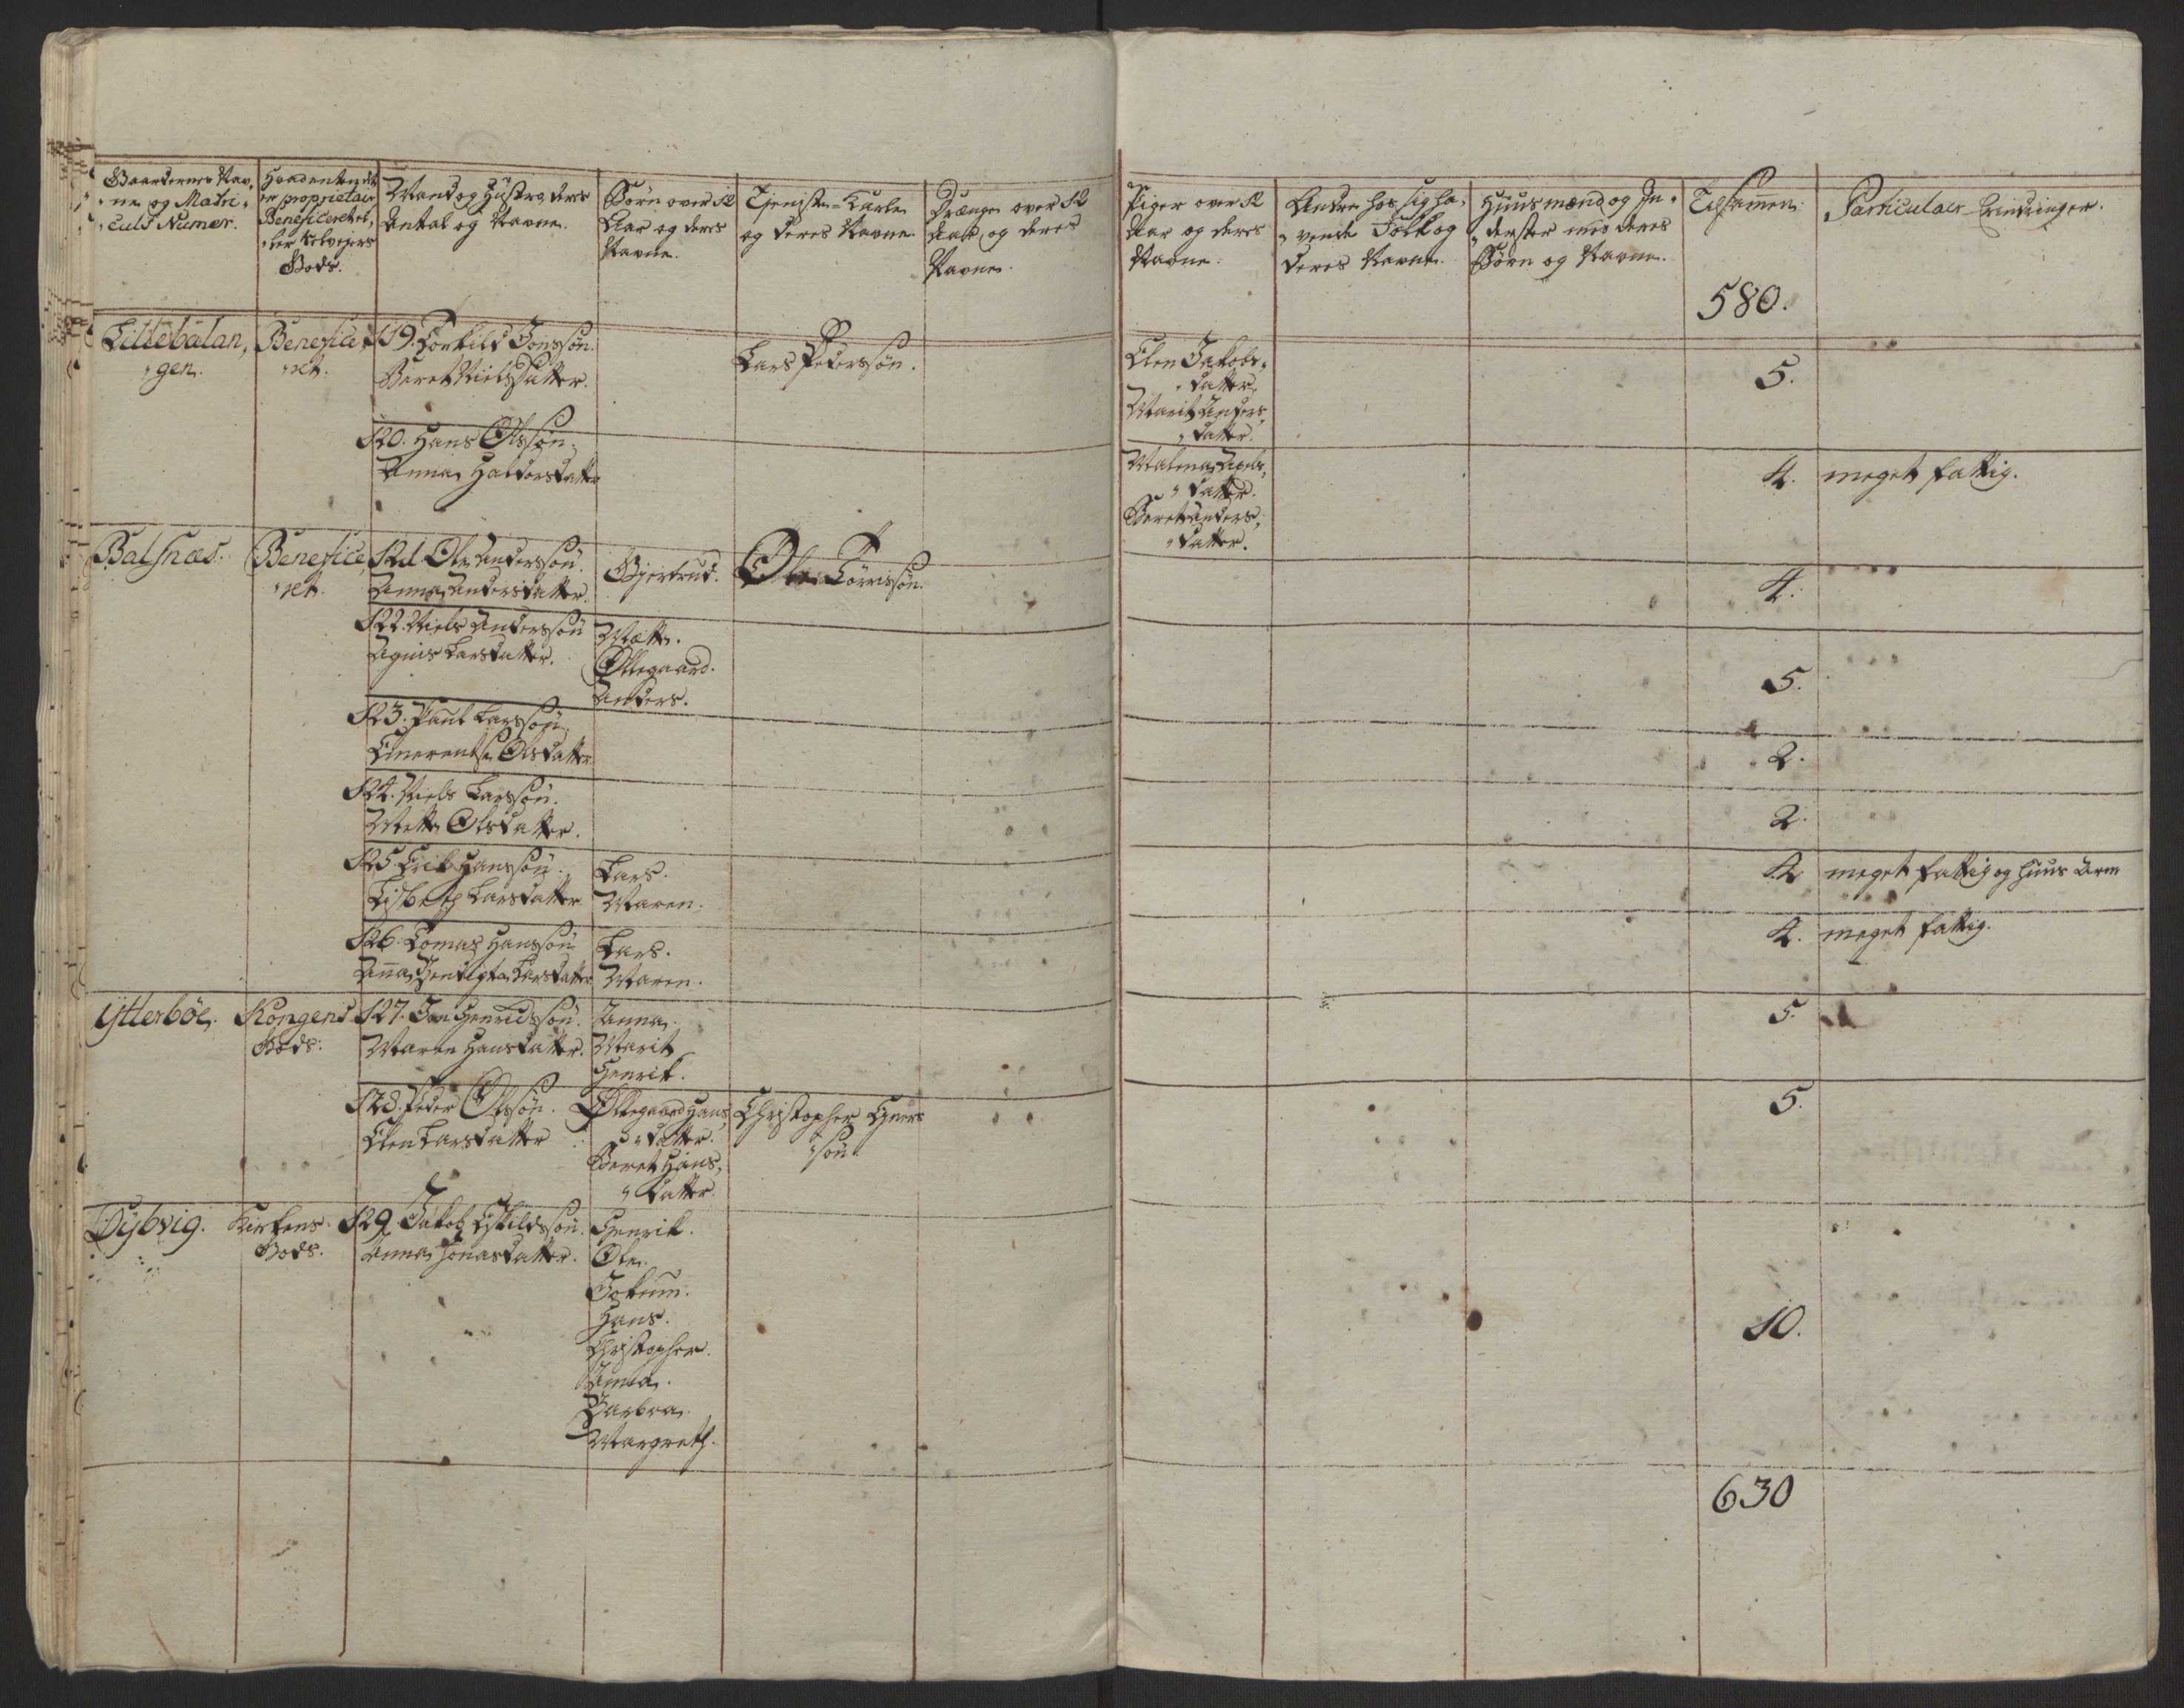 Gaardernes Nav„
„ne og Matri„
„culs Numer.
Hvad enten det
er proprietair
Beneficeret el„
„ler Selvejers
Gods.
Mand og Hustro, deres
Antal og Navne.
Børn over 12
Aar og deres
Navne.
Tjeniste-Karle
og deres Navne.
Drænge over 12
Aar, og deres
Navne.
Piger over 12
Aar og deres
Navne.
Andre hos sig ha„
„vende Folk og
deres Navne.
Huusmænd og In„
„derster med deres
Børn og Navne.
Tilsamen.
Particulair Erindringer.
580.
Lillebalan„
„gen.
Benefice„
„ret.
119. Torkild Jonssøn.
Beret Nielsdatter.
Lars Pederssøn.
Elen Jakobs„
„datter.
Marit Anders„
„datter.
5.
120. Hans Olssøn.
Anna Haldorsdatter
Malena
„datter.
Beret Anders„
„datter.
4. meget fattig.
Balsnæs.
Benefice„
„ret.
121. Ole Anderssøn.
Anna Andersdatter.
Gjertrud.
Ole Tørrissøn.
4.
122. Niels Anderssøn
Agnis Larsdatter.
Mætte.
Ollegaard.
Anders.
5.
123. Paul Larssøn,
Emerentse Olsdatter.
2.
124. Niels Larssøn.
Mette Olsdatter.
2.
125. Erik Hanssøn.
Lisbeth Larsdatter.
Lars.
Maren.
4 meget fattig og huus Arm
126. Tomas Hanssøn
Anna Bendigta Larsdatter
Lars.
Maren.
4. meget fattig.
Ytterbøe.
Kongens
Gods.
127. Jon Henridssøn.
Maren Hansdatter.
Anna.
Marit
Henrik.
5.
128. Peder Olssøn.
Elen Larsdatter
Ollegaard Hans„
„datter.
Beret Hans„
„datter.
Christopher Ejners
„søn
5.
Dybvig.
Kirkens
Gods.
129. Jakob Eskildssøn.
Anna Jonasdatter.
Henrik.
Ole.
Jokum.
Hans.
Christopher.
Anna.
Barbra.
Margreth.
10.
630